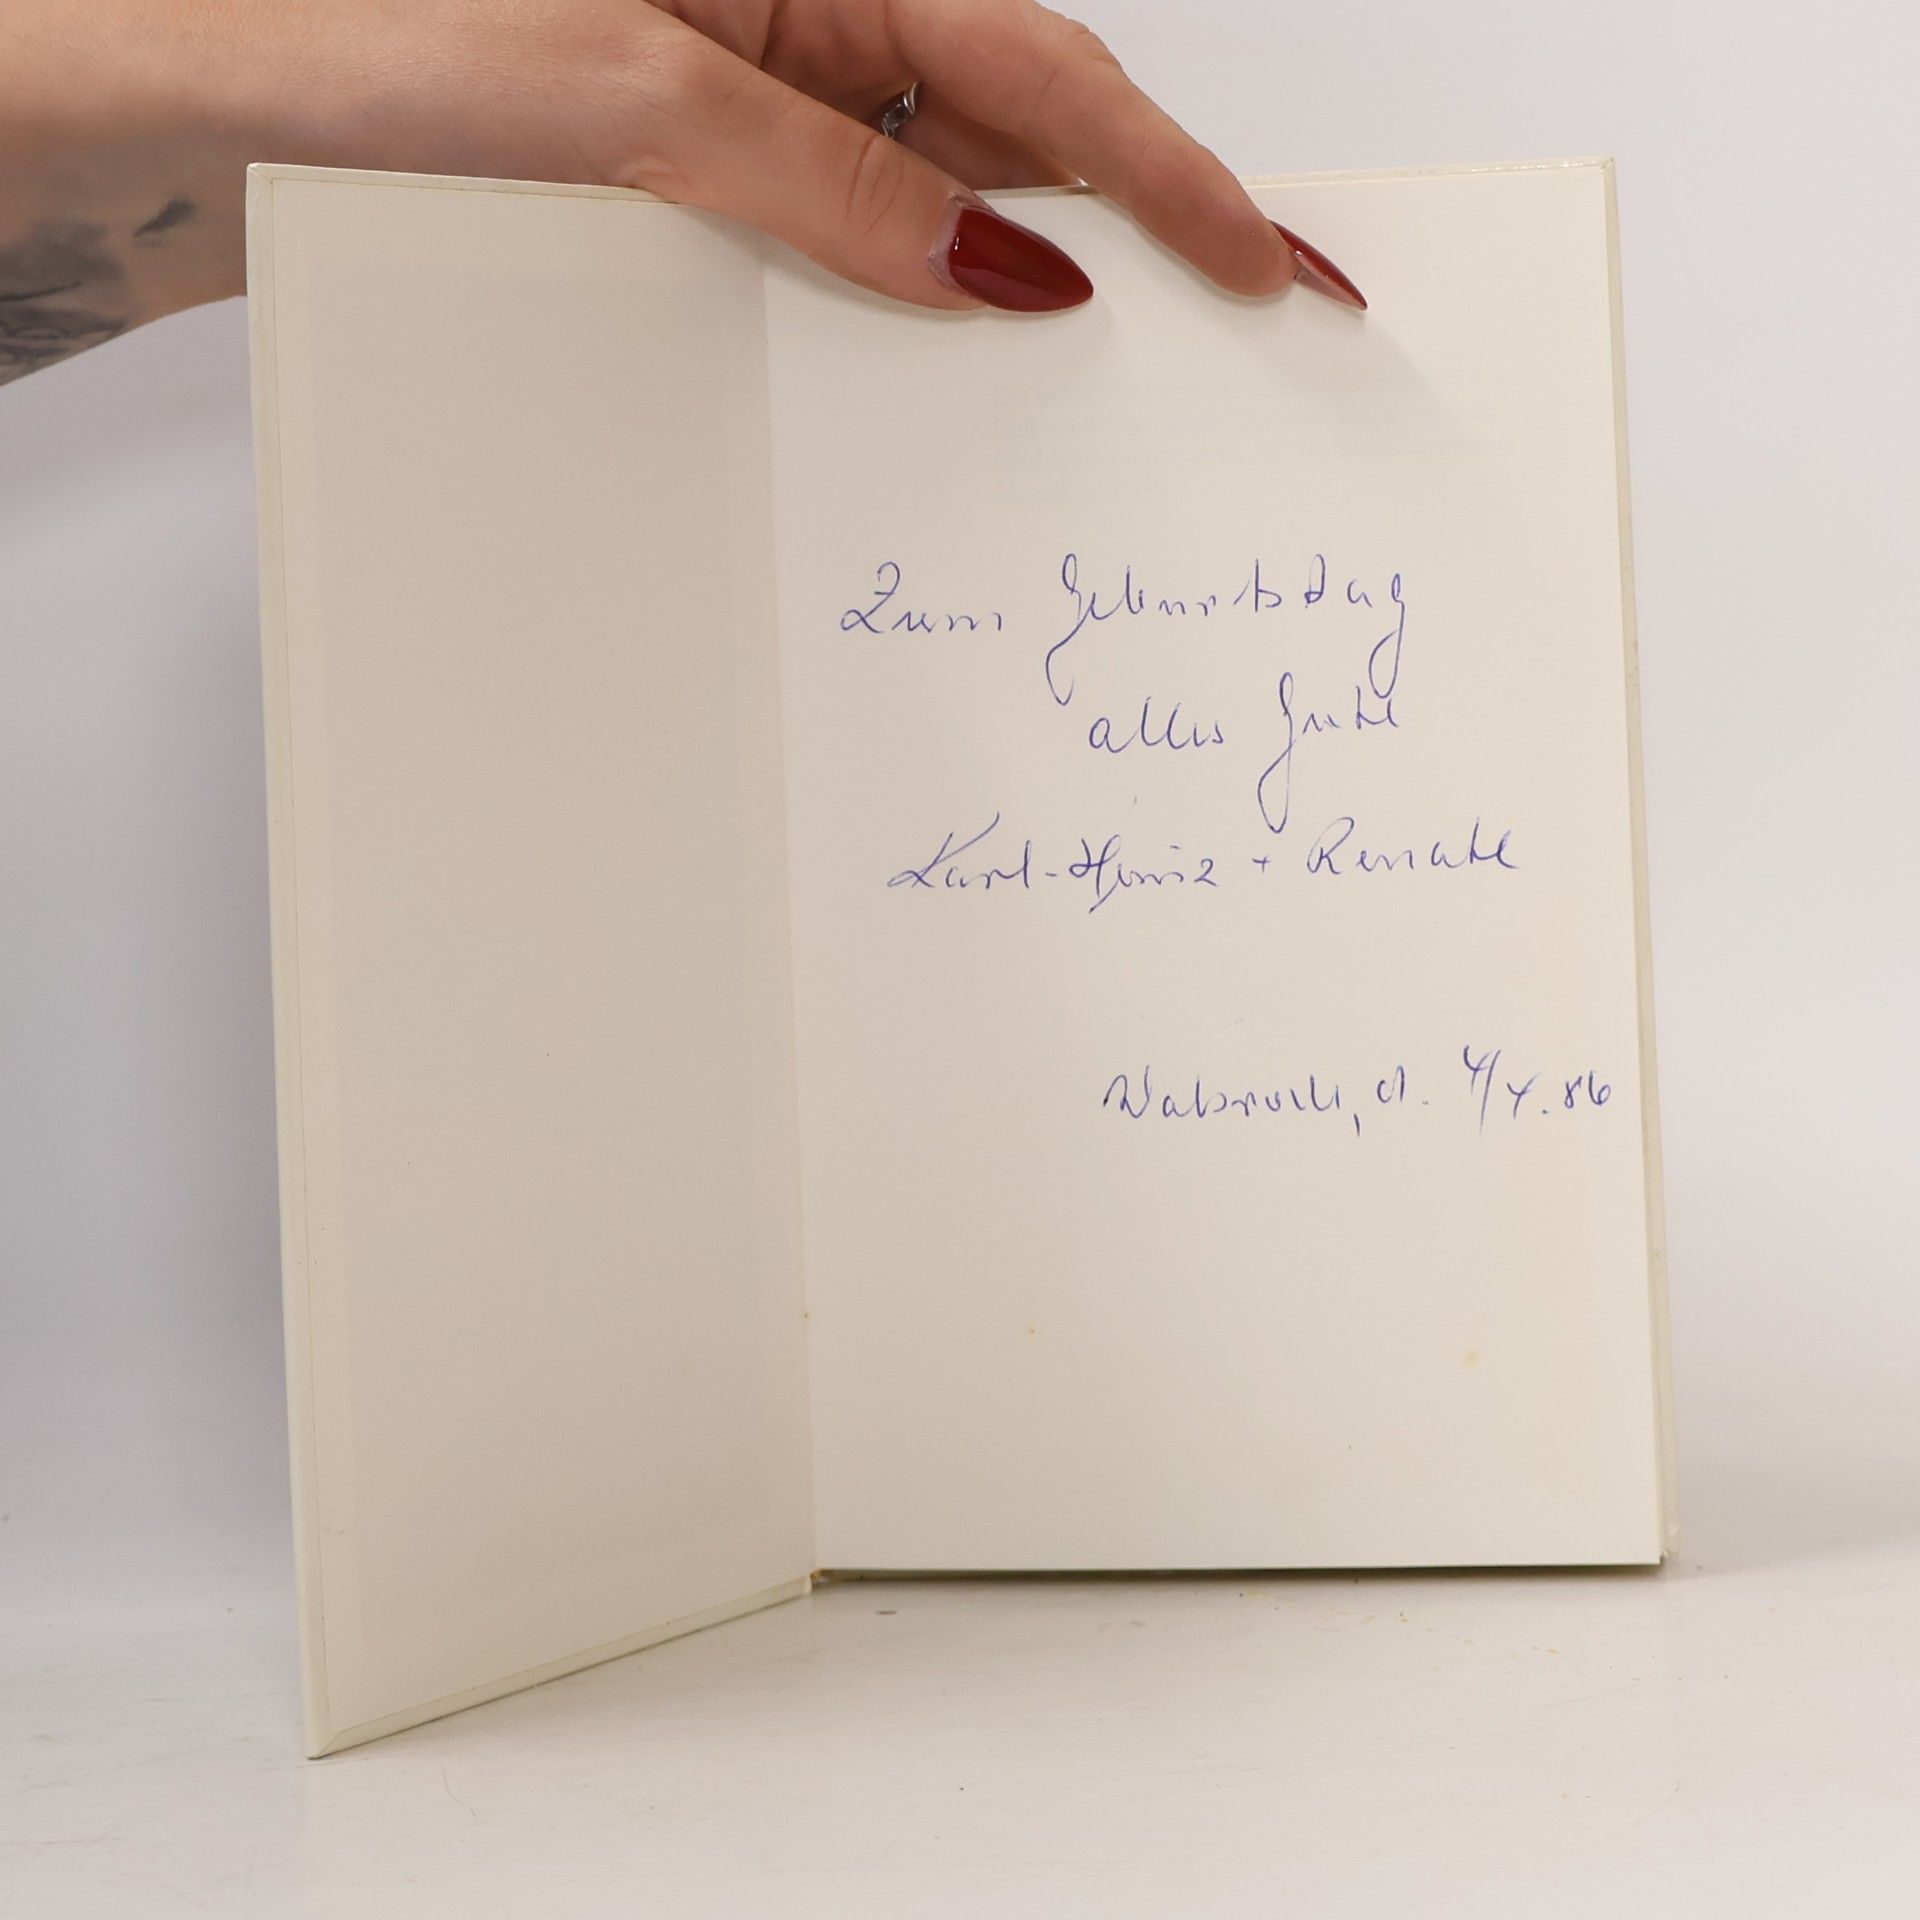 Zum Geburtstag
alles Gute
Karl-Heinz + Renate
d. 4/4.86